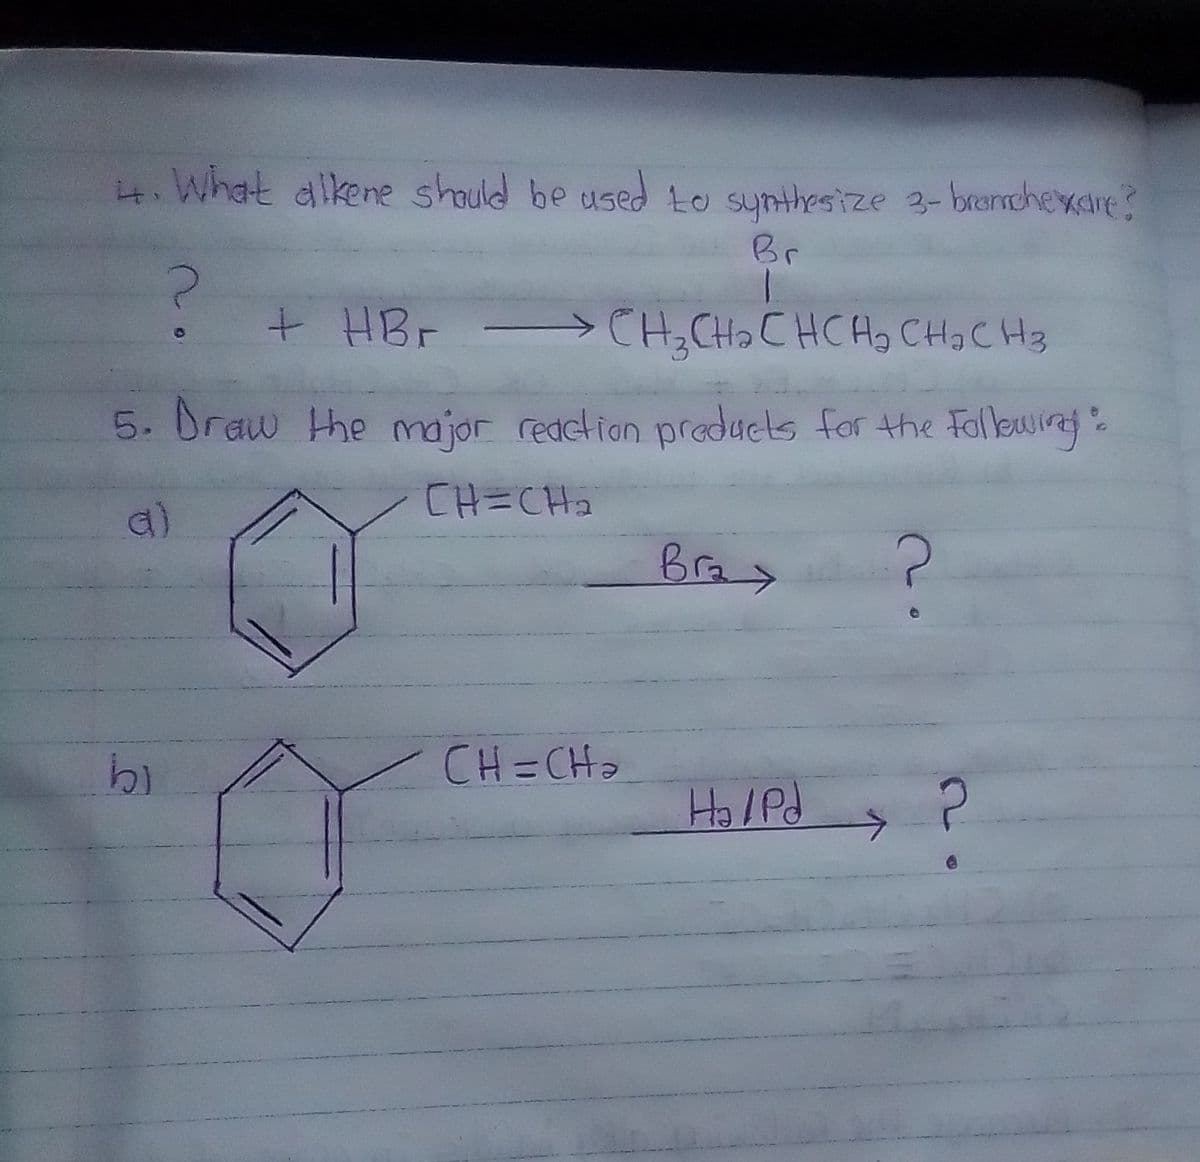 4. What alkene should be used to synthesize 3-bromohexane?
Br
? + HBr → CH₃CH₂CHCH₂CH₂CH₃
5. Draw the major reaction products for the following:
a) CH=CH₂
Br₂ → ?
b) CH=CH₂
H₂/Pd → ?